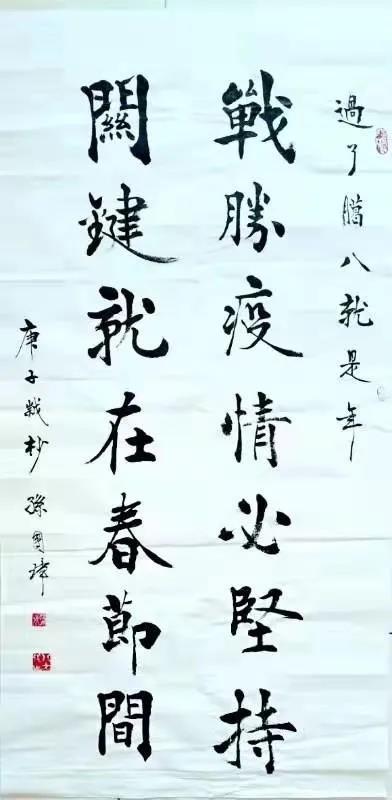 過了臈八就是年
戰勝疫情必堅持
關鍵就在春節間
庚子戰杪 孫國瑋